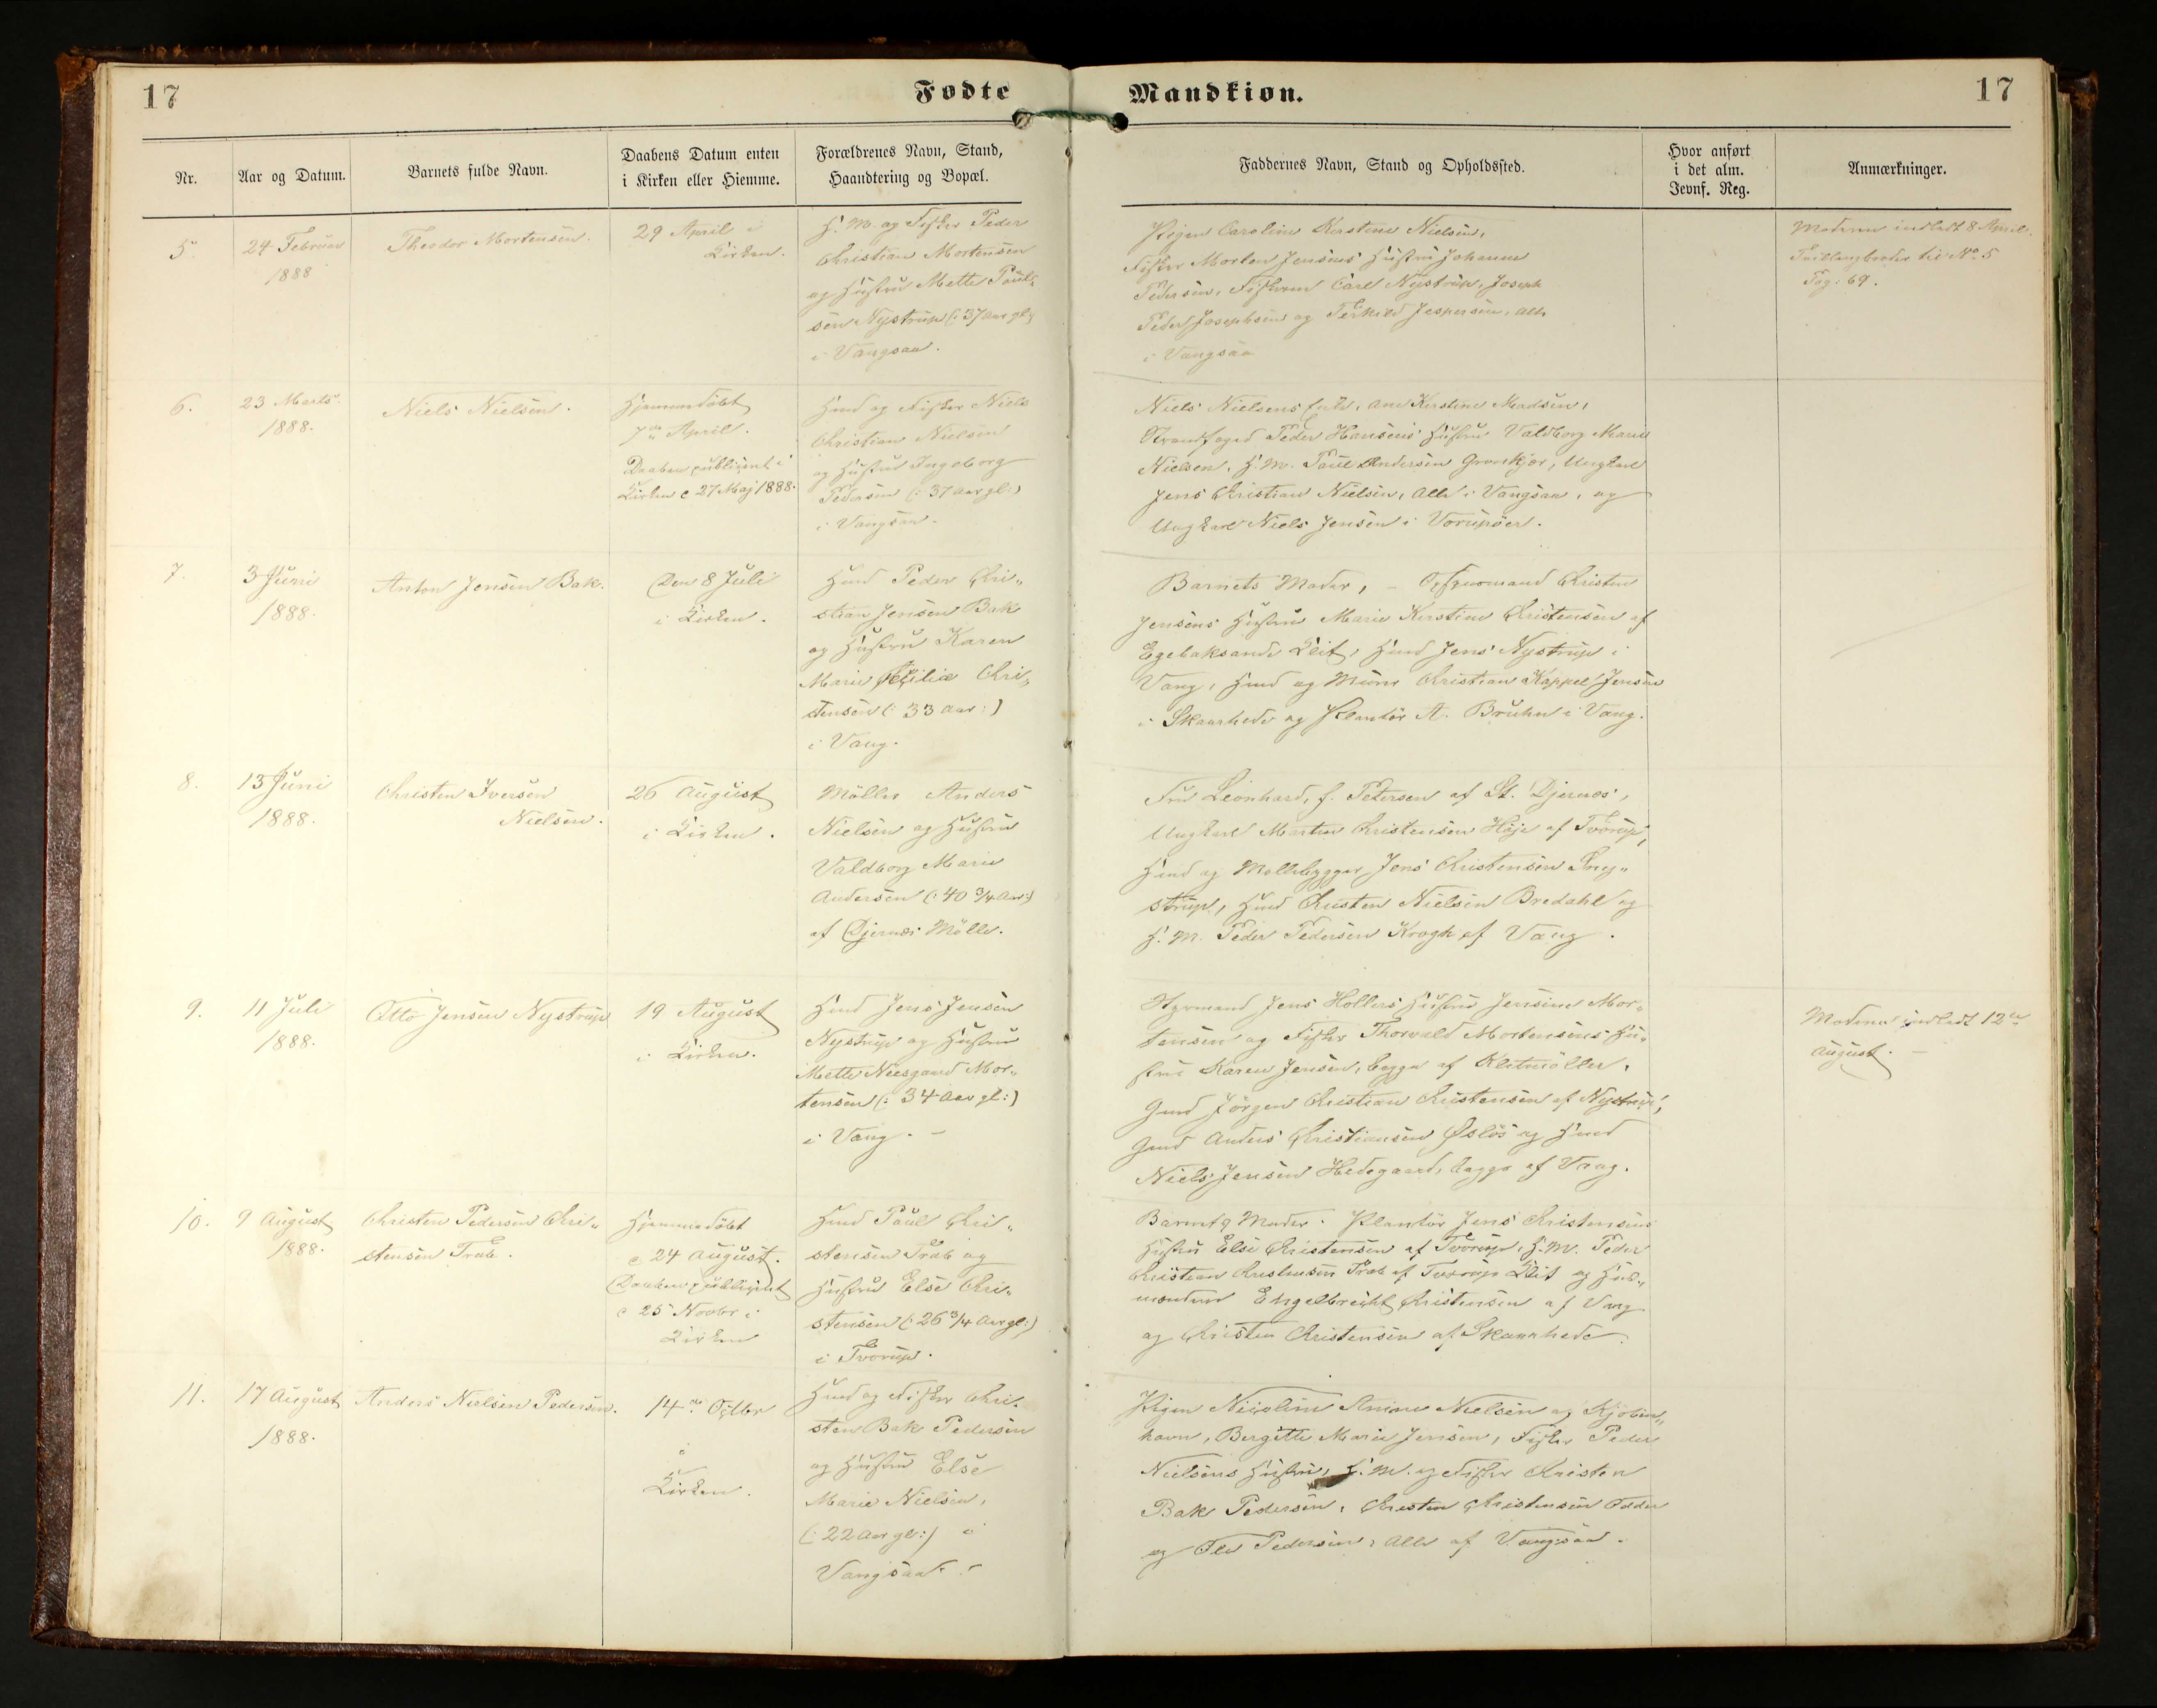 17
Fødte
Mandkiøn.
17
Nr.
Aar og Datum.
Barnets fulde Navn.
Daabens Datum enten
i Kirken eller Hiemme.
Forældrenes Navn, Stand,
Haandtering og Bopæl.
Faddernes Navn, Stand og Opholdssted.
Hvor anført
i det alm.
Jevnf. Reg.
Anmærkninger.
5.
24 Februar
1888
Theodor Mortensen.
29 April i
Kirken.
H. M. og Fisker Peder
Christian Mortensen
og Hustru Mette Pouls
sen Nystrup (: 37 Aar gl:)
i Vangsaa.
Pigen Caroline Kirstine Nielsen,
Fisker Morten Jensens Hustru Johanne
Pedersen, Fiskerne Carl Nystrup, Joseph
Peder Josephsen og Terkild Jespersen, alle
i Vangsaa
Moderen indledt 8 April.
Tvillingbroder til No. 5
Pag. 69.
6.
23 Marts
1888.
Niels Nielsen.
Hjemmedöbt
7de April.
Daaben publiceret i
Kirken d 27 Maj 1888.
Hmd og Fisker Niels
Christian Nielsen
og Hustru Ingeborg
Pedersen (: 37 Aar gl:)
i Vangsaa.
Niels Nielsens Enke, Ane Kirstine Madsen,
Strandfoged Peder Hansens Hustru Valdborg Marie
Nielsen, H. M. Poul Andersen Grønkjær, Ungkarl
Jens Christian Nielsen, alle i Vangsaa, og
Ungkarl Niels Jensen i Vorupöer.
7.
3 Juni
1888.
Anton Jensen Bak.
Den 8 Juli
i Kirken.
Hmd Peder Chri„
stian Jensen Bak
og Hustru Karen
Marie Cecilie Chri„
stensen (: 33 Aar:)
i Vang.
Barnets Moder, – Opsynsmand Christen
Jensens Hustru Marie Kirstine Christensen af
Egebaksande Klit, Hmd Jens Nystrup i
Vang, Hmd og Murer Christian Kappel Jensen
i Skaarhede og Plantör A. Bruhn i Vang.
8.
13 Juni
1888.
Christen Iversen
Nielsen.
26 August
i Kirken.
Möller Anders
Nielsen og Hustru
Valdborg Marie
Andersen (: 40 3/4 Aar:)
af Djernæs Mölle.
Fru Leonhard, f. Petersen af St. Djernæs,
Ungkarl Morten Christensen Höje af Tvorup,
Hmd og Møllebygger Jens Christensen Sne„
strup, Hmd Christen Nielsen Bredahl og
H. M. Peder Pedersen Krogh af Vang.
9.
11 Juli
1888.
Otto Jensen Nystrup
19 August
i Kirken.
Hmd Jens Jensen
Nystrup og Hustru
Mette Neesgaard Mor„
tensen (: 34 Aar gl:)
i Vang. –
Styrmand Jens Hollers Hustru Jensine Mor„
tensen og Fisker Thorvald Mortensens Hu„
stru Karen Jensen, begge af Klitmöller,
Gmd Jörgen Christian Christensen af Nystrup,
Gmd Anders Christiansen Øslös og Hmd
Niels Jensen Hedegaard, begge af Vang.
Moderen indledt 12te
August. –
10.
9 August
1888.
Christen Pedersen Chri„
stensen Trab.
Hjemmedöbt
d 24 August.
Daaben publiceret
d 25 Novbr i
Kirken
Hmd Poul Chri„
stensen Trab og
Hustru Else Chri„
stensen (: 26 3/4 Aar gl:)
i Tvorup.
Barnets Moder. Plantör Jens Christensens
Hustru Else Christensen af Tvorup, H. M. Peder
Christian Christensen Trab af Tvorup Klit og Hus„
mændene Engelbrecht Christensen af Vang
og Christen Christensen af Skaarhede.
11.
17 August
1888.
Anders Nielsen Pedersen.
14de Octbr
i
Kirken.
Hmd og Fisker Chri„
sten Bak Pedersen
og Hustru Else
Marie Nielsen,
(: 22 Aar gl:) i
Vangsaa. –
Pigen Nicoline Anine Nielsen af Kjöben„
havn, Bergitte Marie Jensen, Fisker Peder
Nielsens Hustru, H. M. og Fisker Christen
Bak Pedersen, Christen Christensen Odder
og Ole Pedersen, alle af Vangsaa.